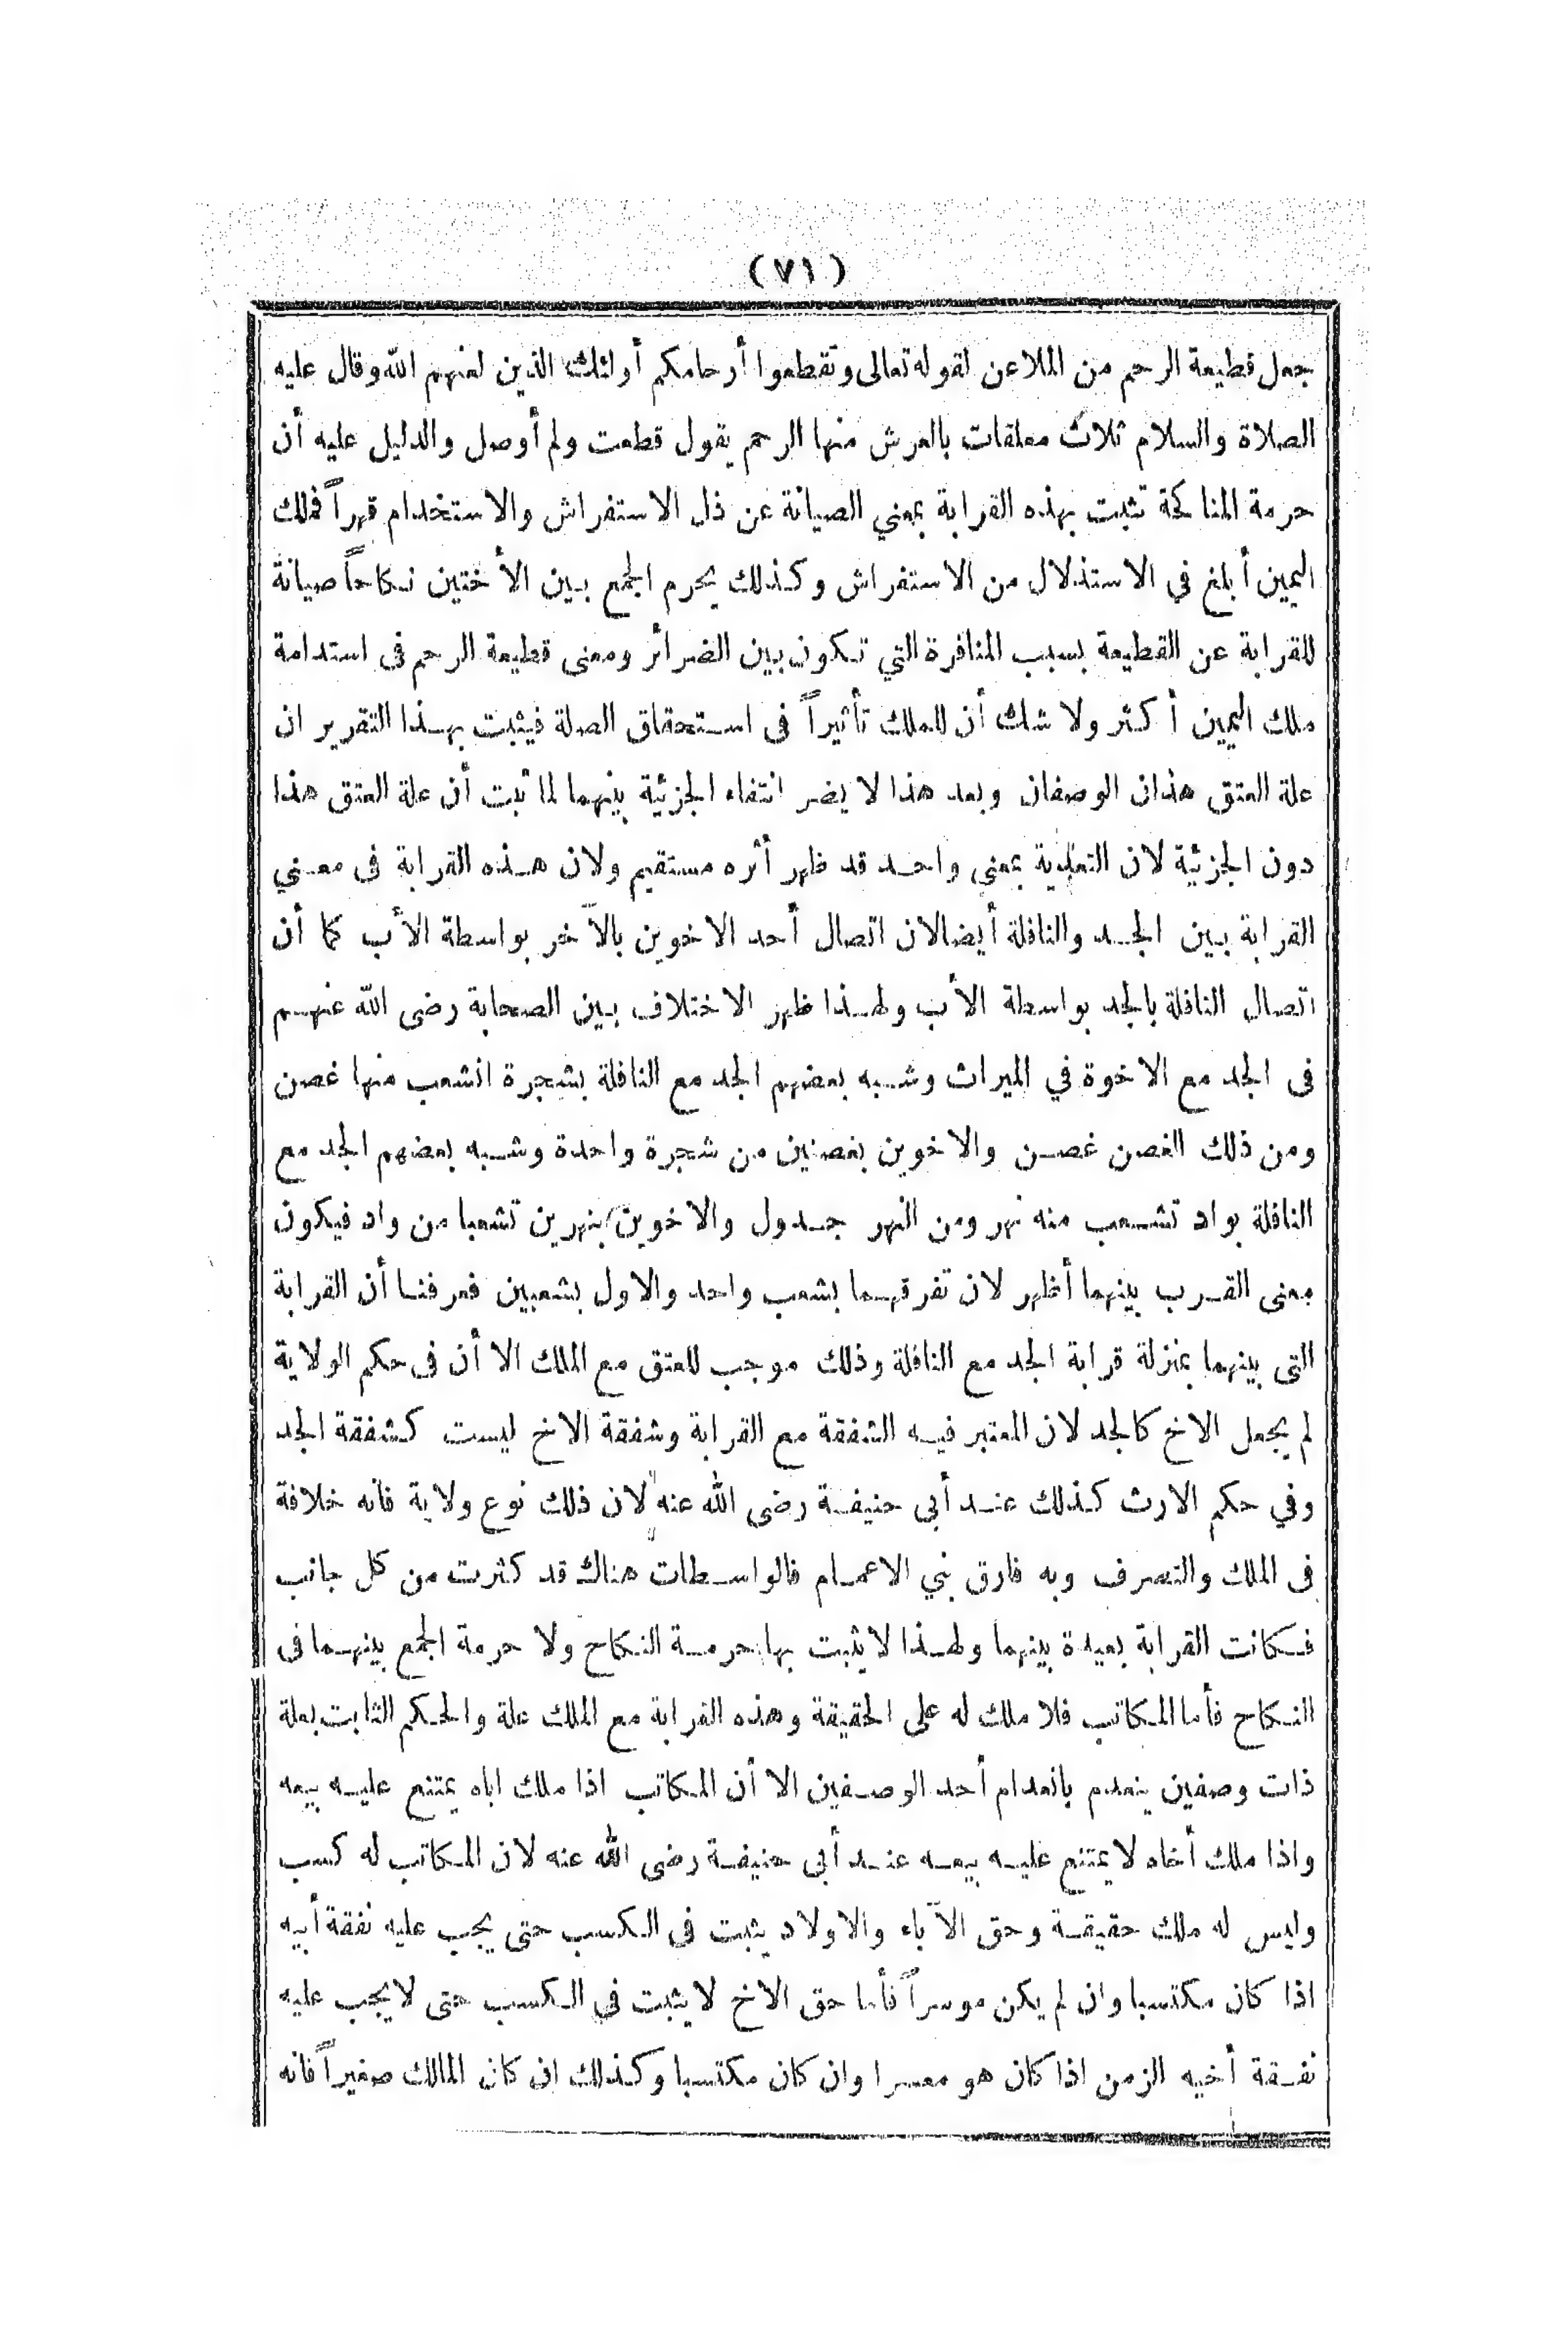 (٧١)
جعل قطيعة الرحم من الملاعن لقوله تعالى وتقطعوا أرحامكم أولئك الذين لعنهم الله وقال عليه
الصلاة والسلام ثلاث معلقات بالعرش منها الرحم يقول قطعت ولم أوصل والدليل عليه أن
حرمة المناكحة تثبت بهذه القرابة بمعني الصيانة عن ذل الاستفراش والاستخدام قهراً فملك
اليمين أبلغ في الاستذلال من الاستفراش وكذلك يحرم الجمع بين الأختين نكاحاً صيانة
للقرابة عن القطيعة بسبب المنافرة التي تكون بين الضرائر ومعنى قطيعة الرحم فى استدامة
ملك اليمين أكثر ولا شك أن للملك تأثيراً فى استحقاق الصلة فيثبت بهذا التقرير ان
علة العتق هذان الوصفان وبعد هذا لا يضر انتفاء الجزئية بينهما لما ثبت أن علة العتق هذا
دون الجزئية لان التعدية بمعنى واحد قد ظهر أثره مستقيم ولان هذه القرابة فى معني
القرابة بين الجد والنافلة أيضا لان اتصال أحد الاخوين بالآخر بواسطة الأب كما أن
اتصال النافلة بالجد بواسطة الأب ولهذا ظهر الاختلاف بين الصحابة رضى الله عنهم
فى الجد مع الاخوة في الميراث وشبه بعضهم الجد مع النافلة بشجرة انشعب منها غصن
ومن ذلك الغصن غصن والاخوين بغصنين من شجرة واحدة وشبه بعضهم الجد مع
النافلة بواد تشعب منه نهر ومن النهر جدول والاخوين بنهرين تشعبا من واد فيكون
معنى القرب بينهما أظهر لان تفرقهما بشعب واحد والاول بشعبين فعرفنا أن القرابة
التى بينهما بمنزلة قرابة الجد مع النافلة وذلك موجب للعتق مع الملك الا أن فى حكم الولاية
لم يجعل الاخ كالجد لان المعتبر فيه الشفقة مع القرابة وشفقة الاخ ليست كشفقة الجد
وفي حكم الارث كذلك عند أبى حنيفة رضى الله عنه لان ذلك نوع ولاية فانه خلافة
فى الملك والتصرف وبه فارق بني الاعمام فالواسطات هناك قد كثرت من كل جانب
فكانت القرابة بعيدة بينهما ولهذا لا يثبت بها حرمة النكاح ولا حرمة الجمع بينهما فى
النكاح فأما المكاتب فلا ملك له على الحقيقة وهذه القرابة مع الملك علة والحكم الثابت بعلة
ذات وصفين ينعدم بانعدام أحد الوصفين الا أن المكاتب اذا ملك اباه يمتنع عليه بيعه
واذا ملك أخاه لا يمتنع عليه بيعه عند أبى حنيفة رضى الله عنه لان المكاتب له كسب
وليس له ملك حقيقة وحق الآباء والاولاد يثبت فى الكسب حتى يجب عليه نفقة أبيه
اذا كان مكتسبا وان لم يكن موسراً فأما حق الاخ لا يثبت في الكسب حتى لا يجب عليه
نفقة أخيه الزمن اذا كان هو معسرا وان كان مكتسبا وكذلك ان كان المالك صغيراً فانه